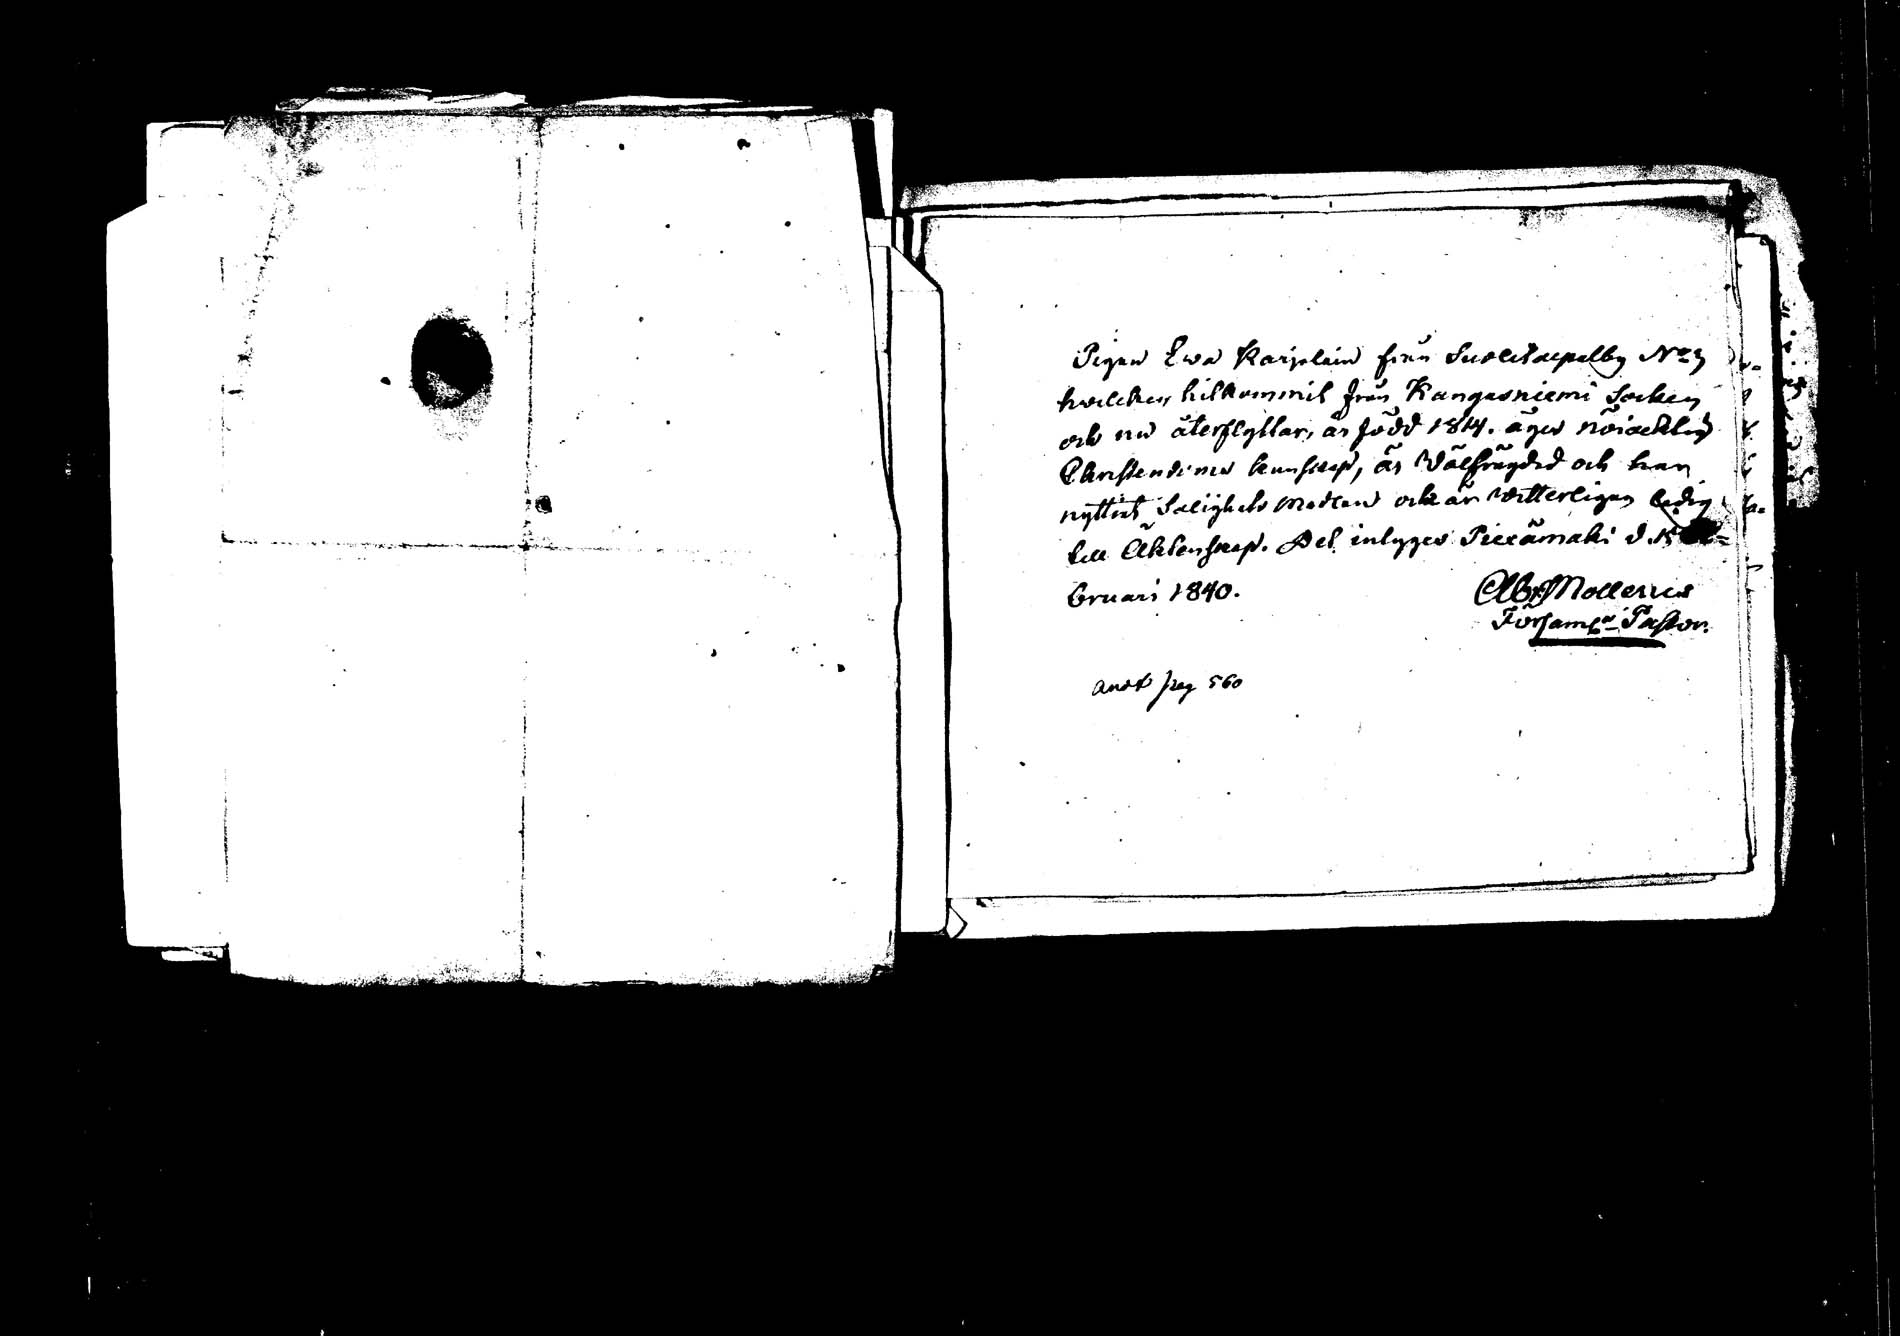 Pigan Ewa Karjalain från Suolitaipalby No 3
hwilken hitkommit från Kangasniemi Socken
och nu återflyttar, är född 1814. äger nöiacktig
Christendoms kunskap, är Wälfrägdad och har
nyttiat Salighets Medlen och är Witterligen ledig
till Äktenskap. Det intygar Piexämäki d. 15 Fe=
bruari 1840.
Ab. Mollerius
Församl:s Pastor.
anot pag 560